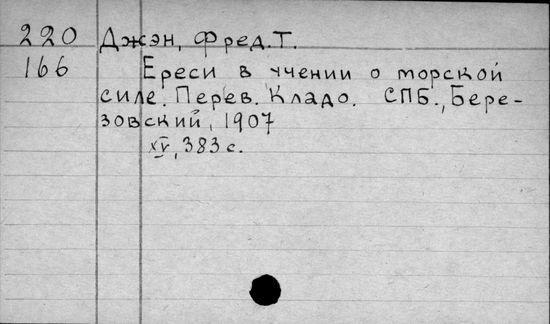 220 Джэн, Фред.Т.
166 Ереси в учении о морской
силе. Перев. Кладо. СПБ., Бере-
зовский, 1907
XV, 383 с.